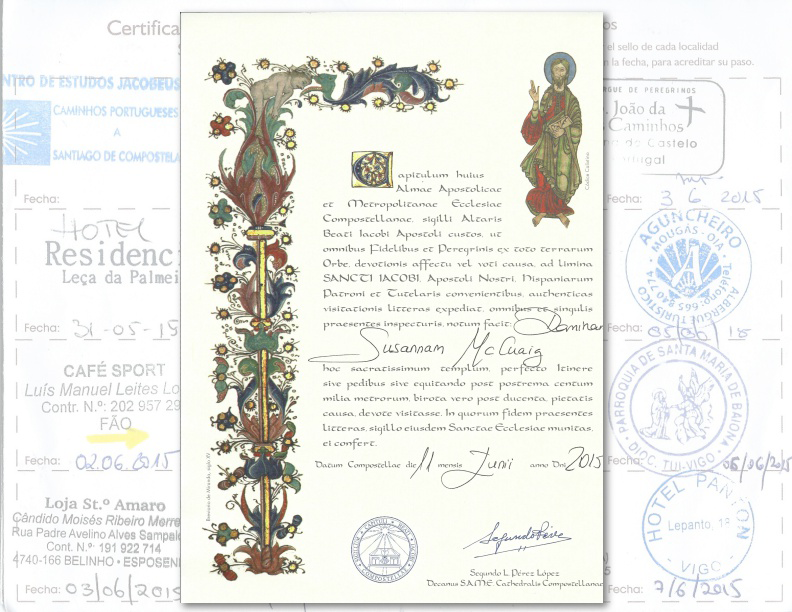 Certifica
os
el sello de cada localidad
n la fecha, para acreditar su paso.
NTRO DE ESTUDOS JACOBEUS
CAMINHOS PORTUGUESES
A
SANTIAGO DE COMPOSTELA
Fecha:
HOTEL
Residenci
Leça da Palmei
Fecha: 31-05-15
CAFÉ SPORT
Luís Manuel Leites Lo
Contr. N.º: 202 957 29
FÃO
Fecha: 02.06.2015
Loja St.º Amaro
Cândido Moisés Ribeiro Morre
Rua Padre Avelino Alves Sampaio
Cont. N.º 191 922 714
4740-166 BELINHO • ESPOSEN
Fecha: 03/06/2015
Capitulum huius
Almae Apostolicae
et Metropolitanae Ecclesiae
Compostellanae, sigilli Altaris
Beati Iacobi Apostoli custos, ut
omnibus Fidelibus et Peregrinis ex toto terrarum
Orbe, devotionis affectu vel voti causa, ad limina
SANCTI IACOBI, Apostoli Nostri, Hispaniarum
Patroni et Tutelaris convenientibus, authenticas
visitationis litteras expediat, omnibus et singulis
praesentes inspecturis, notum facit: Dominam
Susannam McCuaig
hoc sacratissimum templum, perfecto Itinere
sive pedibus sive equitando post postrema centum
milia metrorum, birota vero post ducenta, pietatis
causa, devote visitasse. In quorum fidem praesentes
litteras, sigillo eiusdem Sanctae Ecclesiae munitas,
ei confert.
Datum Compostellae die 11 mensis Junii anno Dni 2015
Segundo L. Pérez López
Decanus S.A.M.E. Cathedralis Compostellanae
RGUE DE PEREGRINOS
. João da
Caminhos
na do Castelo
rtugal
Fecha: 3 6 2015
AGUNCHEIRO
MOUGÁS - OIA
ALBERGUE TURÍSTICO
Fecha: 05/06/15
PARROQUIA DE SANTA MARIA DE BAIONA
DIOC. TUI-VIGO
Fecha: 05/06/2015
HOTEL PANTON
Lepanto, 18
- VIGO -
Fecha: 7/6/2015